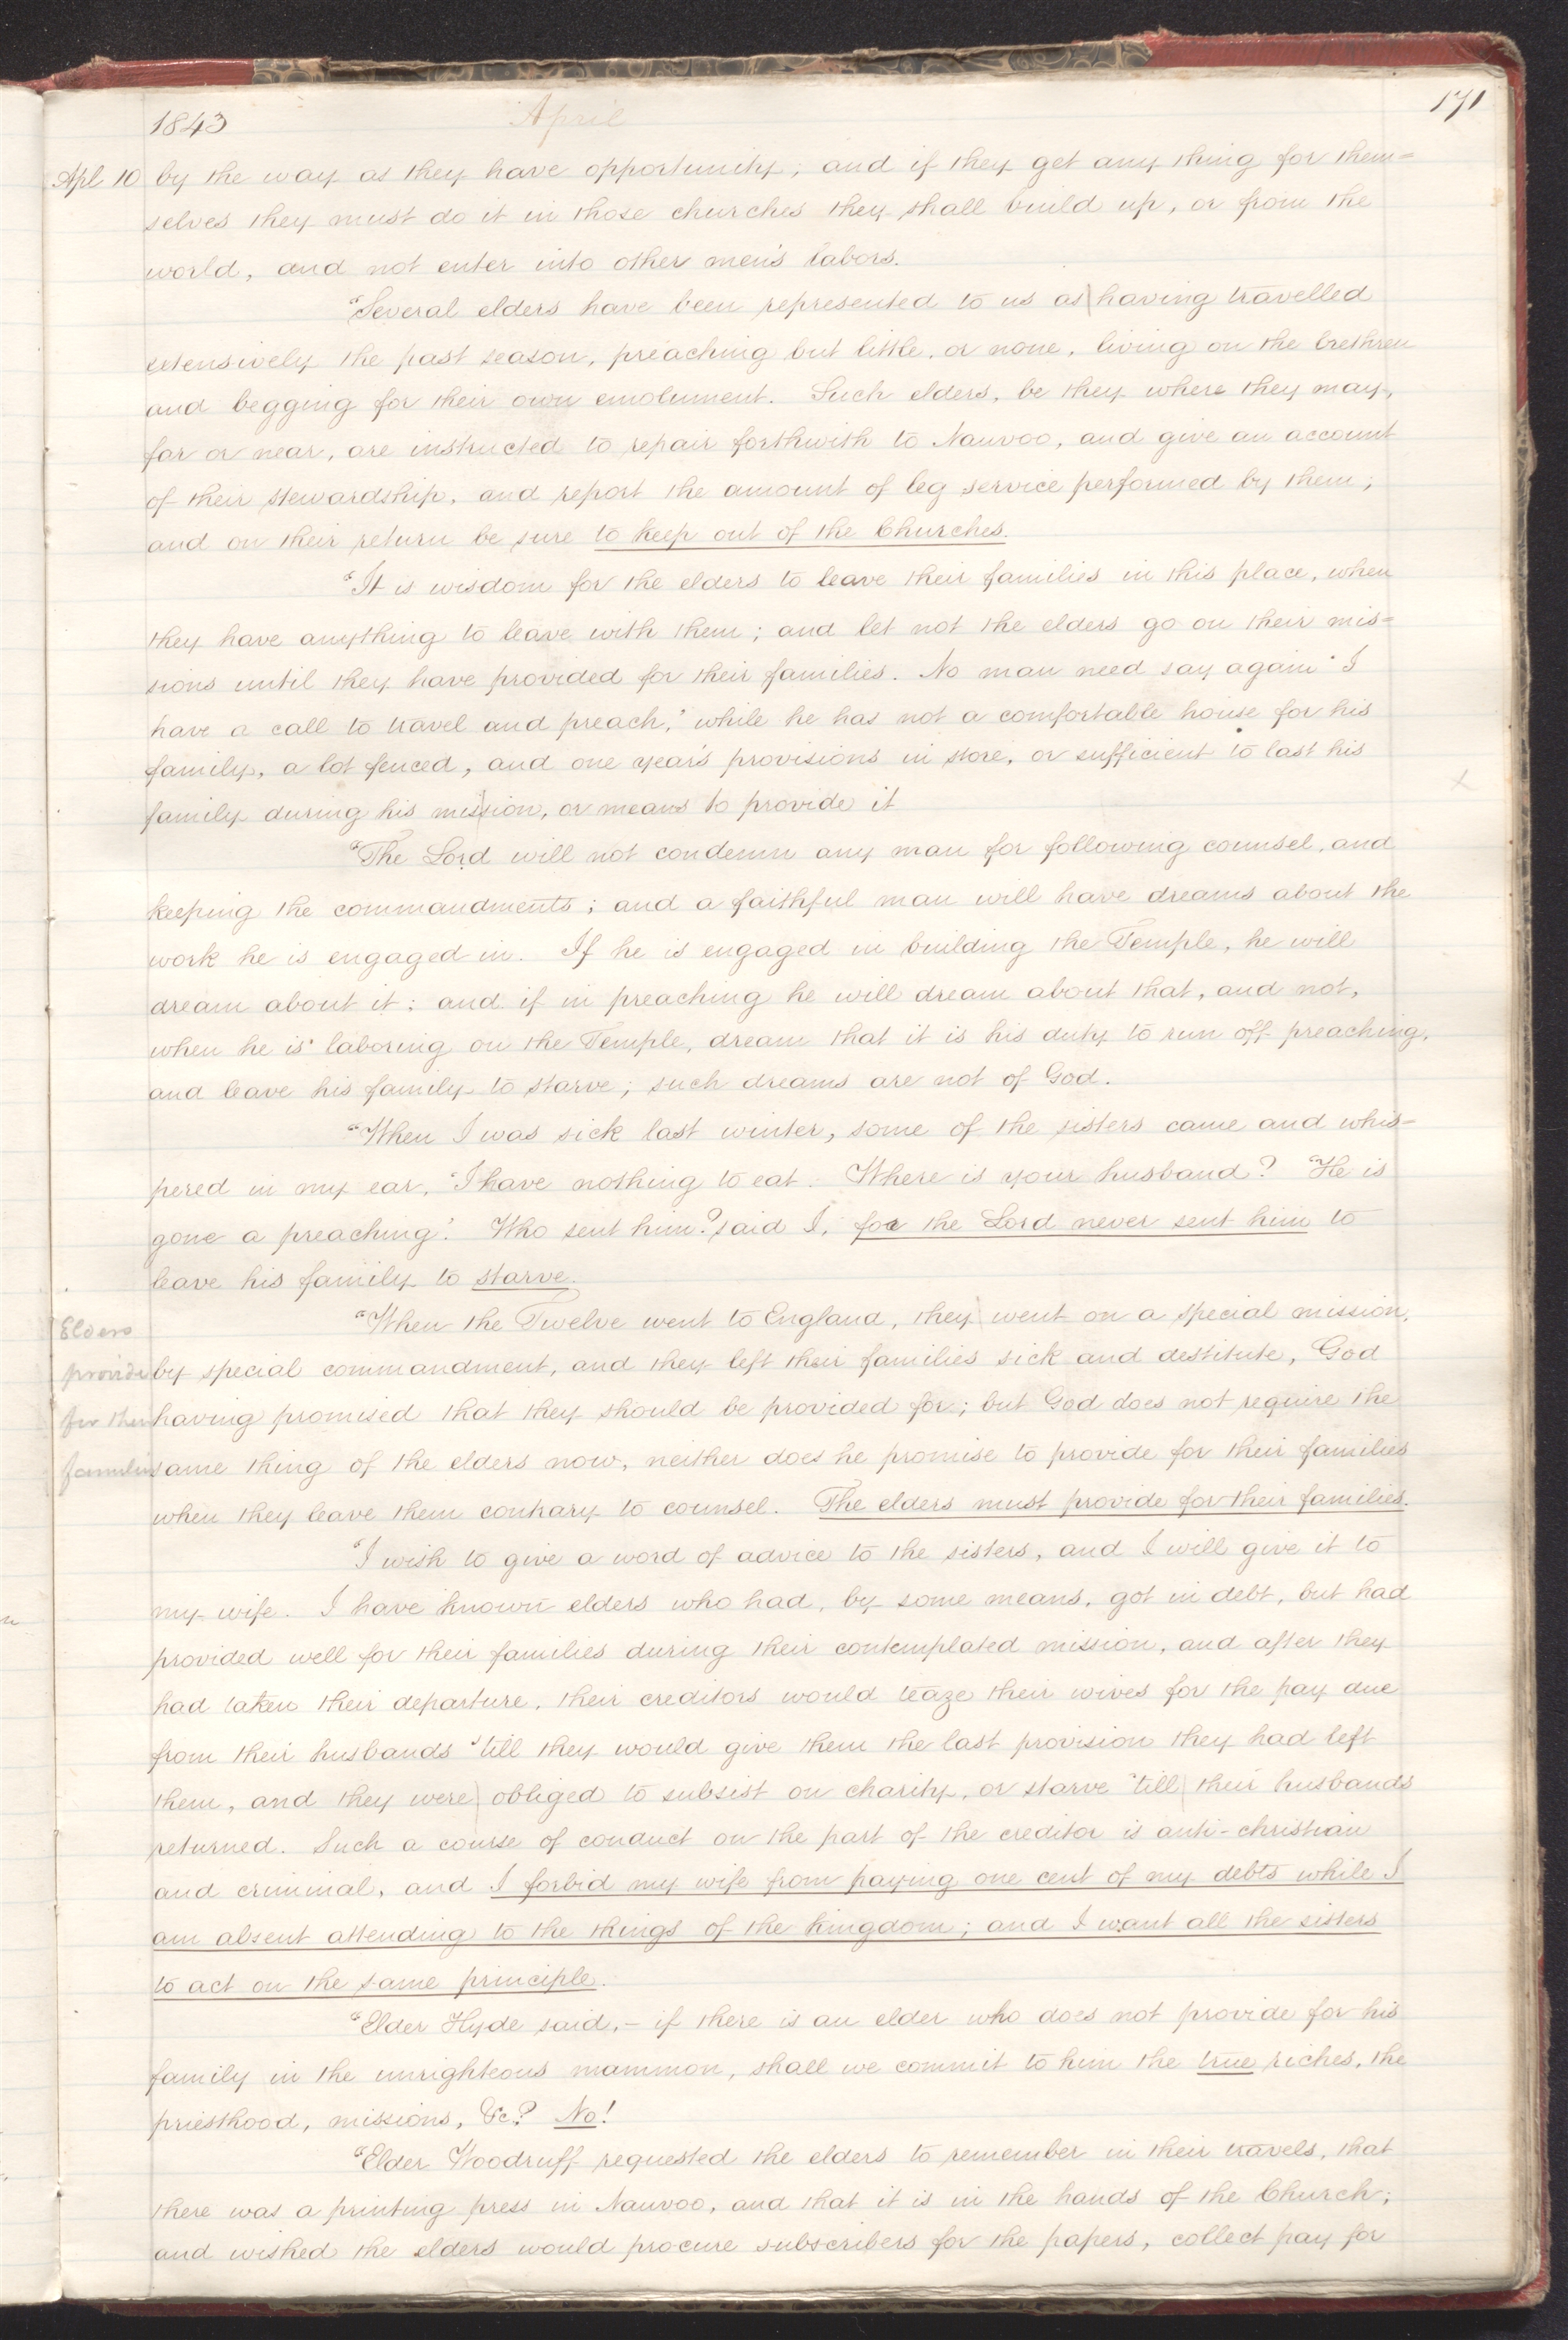 1843 April 171
Apl 10 by the way as they have opportunity; and if they get any thing for them=
selves they must do it in those churches they shall build up, or from the
world, and not enter into other men's labors.
"Several elders have been represented to us as having travelled
extensively the past season, preaching but little, or none, living on the brethren
and begging for their own emolument. Such elders, be they where they may,
far or near, are instructed to repair forthwith to Nauvoo, and give an account
of their stewardship, and report the amount of leg service performed by them;
and on their return be sure to keep out of the Churches.
"It is wisdom for the elders to leave their families in this place, when
they have anything to leave with them; and let not the elders go on their mis=
sions until they have provided for their families. No man need say again "I
have a call to travel and preach," while he has not a comfortable house for his
family, a lot fenced, and one year's provisions in store, or sufficient to last his
family during his mission, or means to provide it
"The Lord will not condemn any man for following counsel, and
keeping the commandments; and a faithful man will have dreams about the
work he is engaged in. If he is engaged in building the Temple, he will
dream about it; and if in preaching he will dream about that, and not,
when he is laboring on the Temple, dream that it is his duty to run off preaching,
and leave his family to starve; such dreams are not of God.
"When I was sick last winter, some of the sisters came and whis-
pered in my ear, "I have nothing to eat. Where is your husband? "He is
gone a preaching". Who sent him? said I, for the Lord never sent him to
leave his family to starve.
"When the Twelve went to England, they went on a special mission,
by special commandment, and they left their families sick and destitute, God
having promised that they should be provided for; but God does not require the
same thing of the elders now, neither does he promise to provide for their families
when they leave them contrary to counsel. The elders must provide for their families.
Elders
provide
for their
families
"I wish to give a word of advice to the sisters, and I will give it to
my wife. I have known elders who had, by some means, got in debt, but had
provided well for their families during their contemplated mission, and after they
had taken their departure, their creditors would teaze their wives for the pay due
from their husbands 'till they would give them the last provision they had left
them, and they were obliged to subsist on charity, or starve 'till their husbands
returned. Such a course of conduct on the part of the creditor is anti-christian
and criminal, and I forbid my wife from paying one cent of my debts while I
am absent attending to the things of the kingdom; and I want all the sisters
to act on the same principle.
"Elder Hyde said,- if there is an elder who does not provide for his
family in the unrighteous mammon, shall we commit to him the true riches, the
priesthood, missions, &c? No!
"Elder Woodruff requested the elders to remember in their travels, that
there was a printing press in Nauvoo, and that it is in the hands of the Church;
and wished the elders would procure subscribers for the papers, collect pay for